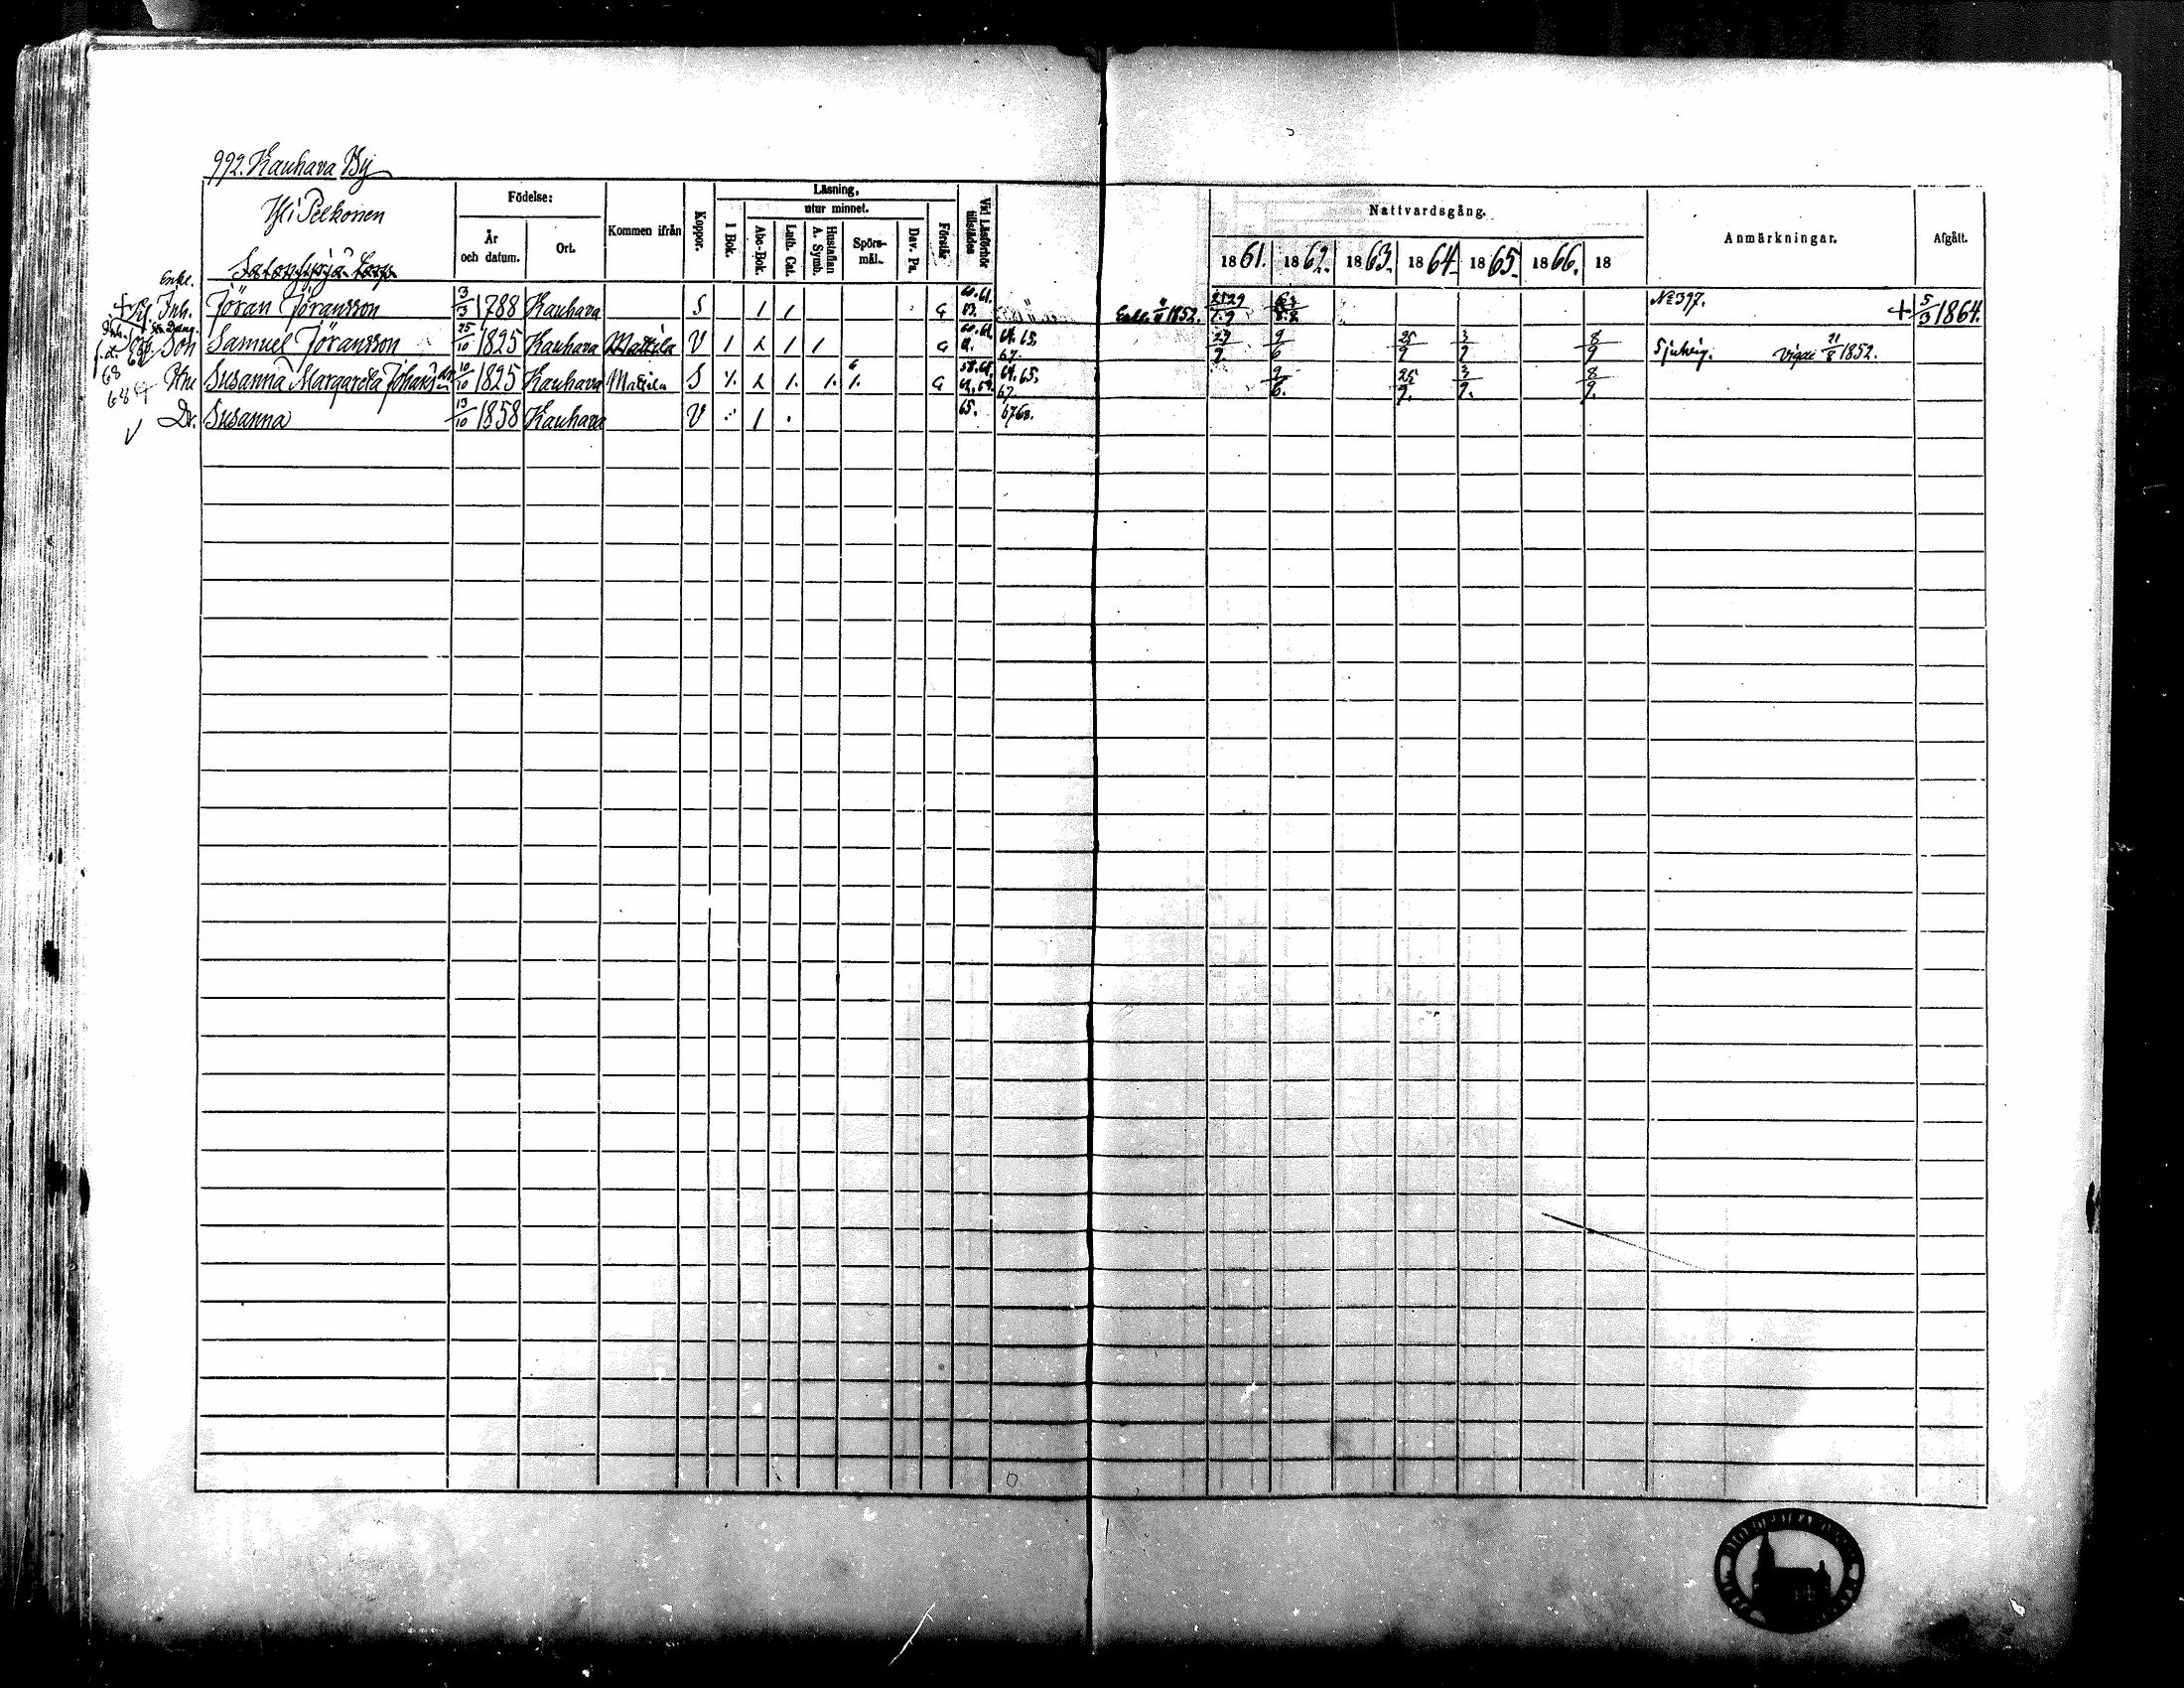 992. Kauhava By
Yli Pelkonen
Födelse:
År och datum.
Ort.
Kommen ifrån
Koppor.
Läsning,
utur minnet.
I Bok.
Abc-Bok.
Luth. Cat.
Hustaflan A. Symb.
Spörs-mål.
Dav. Ps.
Förstår
Vid Läsförhör tillstädes
Nattvardsgång.
1861. 1862. 1863. 1864. 1865. 1866. 18
Anmärkningar.
Afgått.
Enkl.
Inh. Jöran Jöransson 3/3 1788 Kauhava S 1 1 G 60. 61. 63. 1852. No 397. + 5/3 1864.
Son Samuel Jöransson 25/10 1825 Kauhava Mattila V 1 1 1 G 60. 61. 64. 65. 67. 29/9 9/6 25/9 3/9 8/9 vigde 21/8 1852.
Hu Susanna Margareta Johansdr 10/10 1825 Kauhava Mattila S G 64. 65. 67. 9/6. 25/9. 3/9. 8/9.
Dr. Susanna 13/10 1858 Kauhava V 1 65. 67 68.